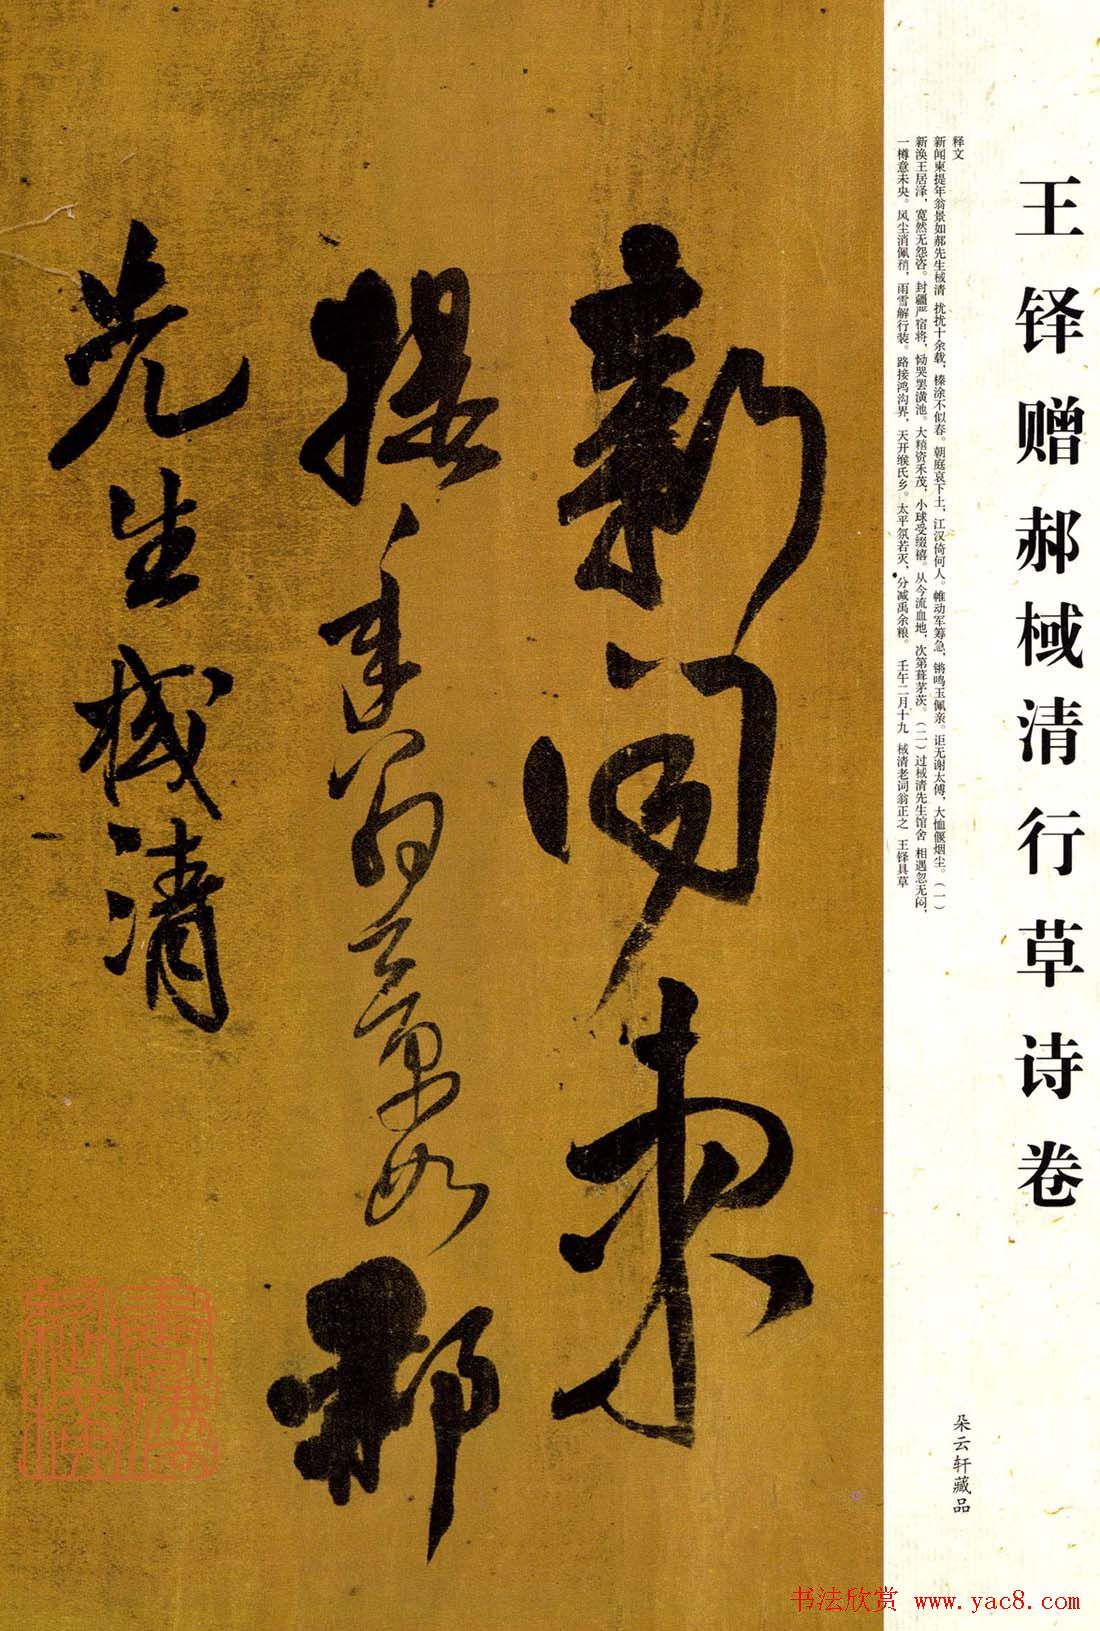 王铎赠郝棫清行草诗卷
释文
新闻柬提年翁景如郝先生棫清 扰扰十余载，榛涂不似春。朝庭哀下土，江汉倚何人。帷动军筹急，锵鸣玉佩亲。讵无谢太傅，大恤偃烟尘。（一）
新涣王居泽，宽然无怨咨。封疆严宿将，恸哭罢潢池。大穑资禾茂，小球受缀禧。从今流血地，次第葺茅茨。（二）过棫清先生馆舍 相遇忽无闷，
一樽意未央。风尘消佩鞘，雨雪解行装。路接鸿沟界，天开缑氏乡。太平氛若灭，分减禹余粮。 壬午二月十九 棫清老词翁正之 王铎具草
朵云轩藏品
新闻柬
提年翁景如郝
先生棫清
书法欣赏 www.yac8.com